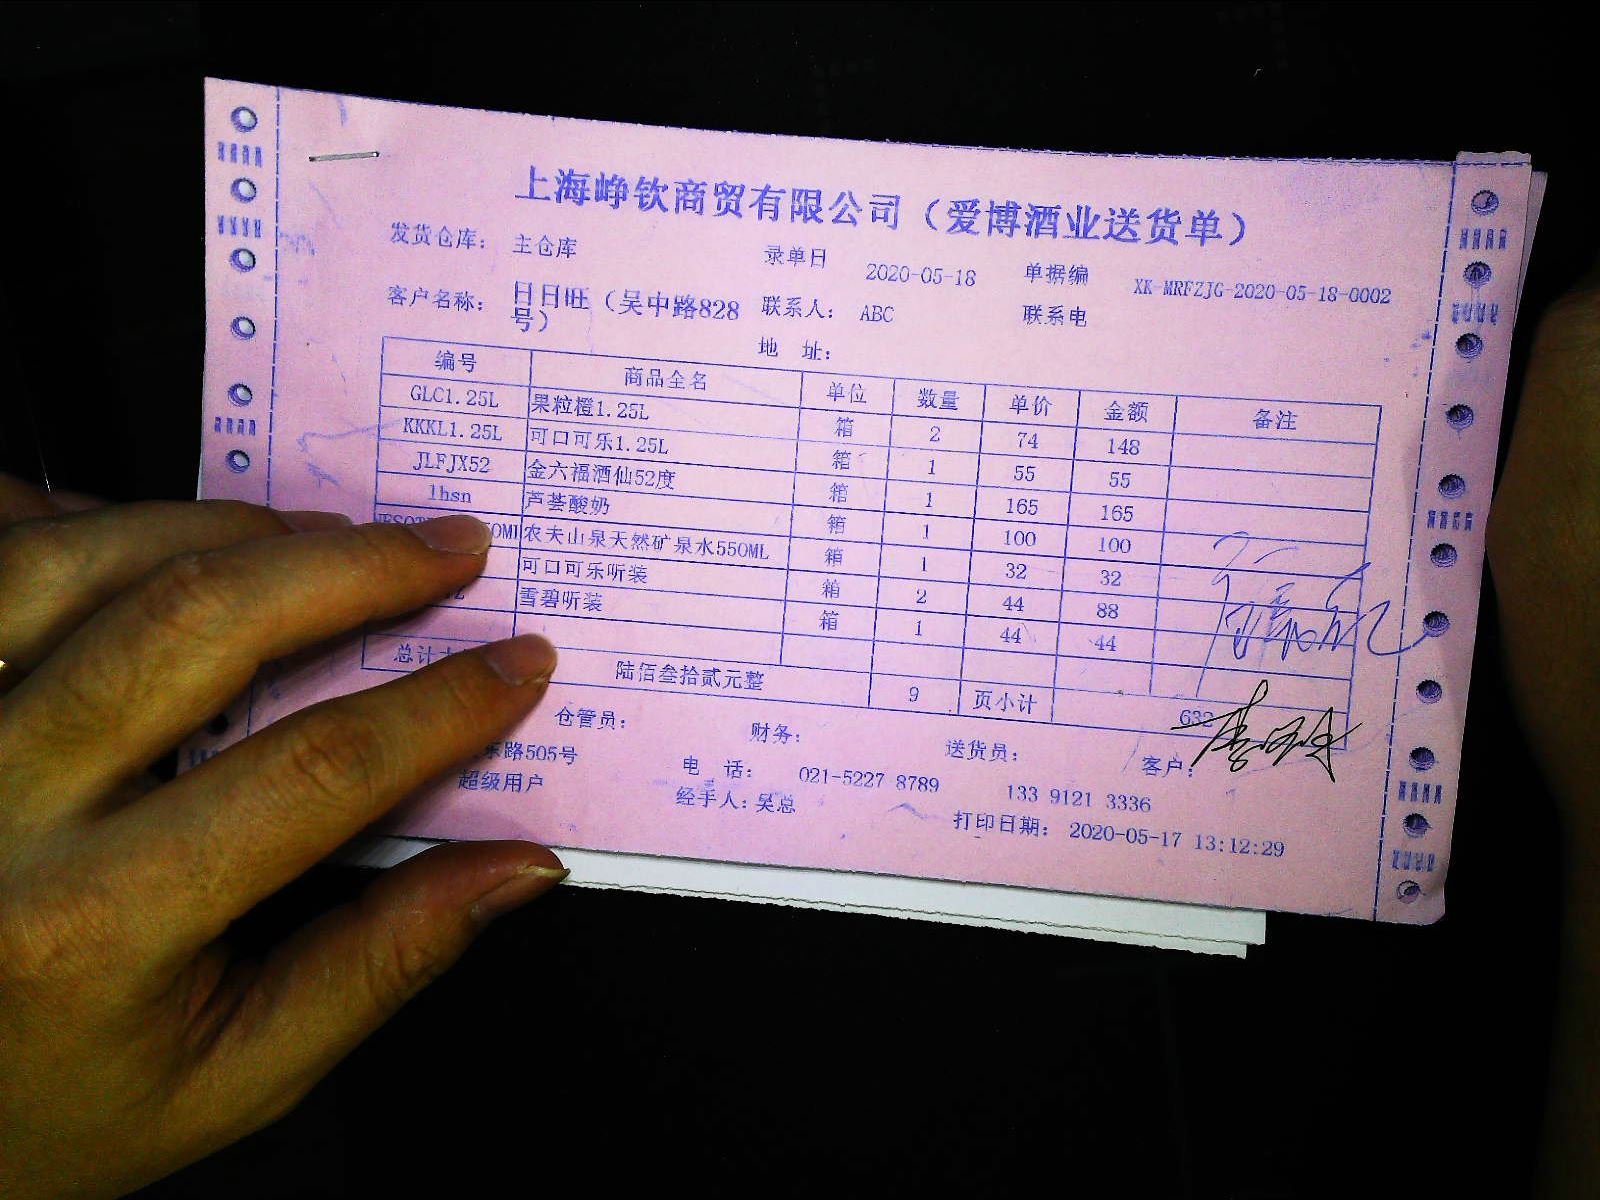 上海峥钦商贸有限公司（爱博酒业送货单）
发货仓库： 主仓库 录单日 2020-05-18 单据编 XK-MRFZJG-2020-05-18-0002
客户名称： 日日旺（吴中路828号） 联系人： ABC 联系电
地 址：
编号 商品全名 单位 数量 单价 金额 备注
GLC1.25L 果粒橙1.25L 箱 2 74 148
KKKL1.25L 可口可乐1.25L 箱 1 55 55
JLFJX52 金六福酒仙52度 箱 1 165 165
lhsn 芦荟酸奶 箱 1 100 100
50ML 农夫山泉天然矿泉水550ML 箱 1 32 32
可口可乐听装 箱 2 44 88
雪碧听装 箱 1 44 44
总计大 陆佰叁拾贰元整 9 页小计 632
仓管员： 财务： 送货员： 客户：
路505号 电 话： 021-5227 8789 133 9121 3336
超级用户 经手人：吴总 打印日期： 2020-05-17 13:12:29